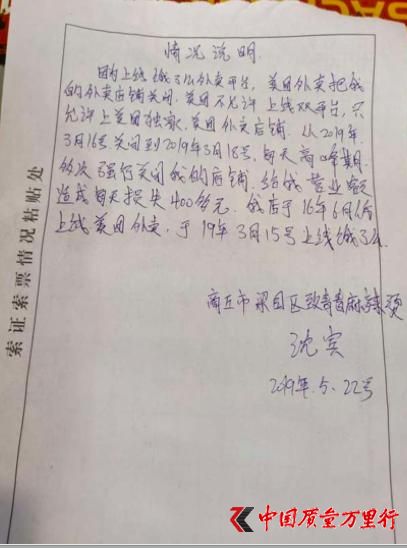 情况说明
因为上线饿了么外卖平台,美团外卖把我
的外卖店铺关闭.美团不允许上线双平台,只
允许上美团独家.美团外卖店铺.从2019年.
3月16号关闭到2019年3月18号,每天高峰期.
多次强行关闭我的店铺.给我营业额
造成每天损失400多元.我店于16年6月份
上线美团外卖,于19年3月15号上线饿了么.
商丘市梁园区致青春麻辣烫
沈宾
2019年.5.22号
索证索票情况帖贴处
中国质量万里行